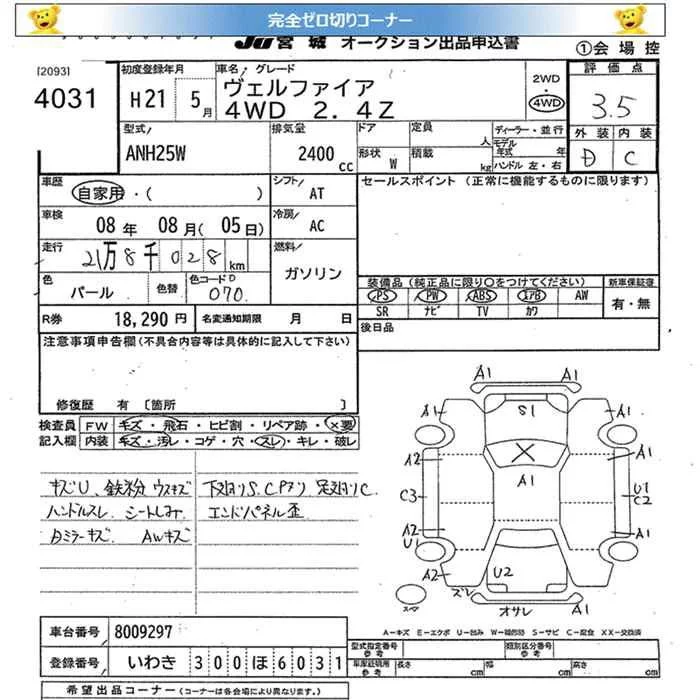 完全ゼロ切りコーナー
JU宮城 オークション出品申込書 ①会場控
[2093]
4031
初度登録年月
H21 5月
車名・グレード
ヴェルファイア
4WD 2.4Z
2WD
4WD
評価点
3.5
外装 内装
D C
型式
ANH25W
排気量
2400cc
ドア 定員 人
形状 W 積載 kg
ディーラー・並行
モデル年式 年
ハンドル 左・右
車歴 自家用・( )
シフト AT
車検 08年 08月(05日)
冷房 AC
走行 21万8千028km
燃料 ガソリン
色 パール 色替 色コードD 070
R券 18,290円 名変通知期限 月 日
セールスポイント (正常に機能するものに限ります)
装備品 (純正品に限り〇をつけてください)
PS PW ABS エアB AW
SR ナビ TV カワ
新車保証書
有・無
後日品
注意事項申告欄(不具合内容等は具体的に記入して下さい)
修復歴 有 〔箇所 〕
検査員記入欄
FW キズ・飛石・ヒビ割・リペア跡・×要
内装 キズ・汚レ・コゲ・穴・スレ・キレ・破レ
キズU、鉄粉 ウスキズ 下回りS.Cアリ 足廻りC
ハンドルスレ シートしみ エンドパネル歪
Dミラーキズ AWキズ
A1
A1 S1 A1
A2 A1 A1
C3 U1 C2
A2 A1
U1
A2 U2 A1
ズレ オサレ A1
スマ
A-キズ E-エクボ U-凹み W-補修跡 S-サビ C-腐食 XX-交換済
車台番号 8009297
登録番号 いわき 300ほ6031
型式指定番号 参考
類別区分番号 参考
車庫証明用 参考 長さ 幅 高さ
cm cm cm
希望出品コーナー (コーナーは各会場により異なります。)